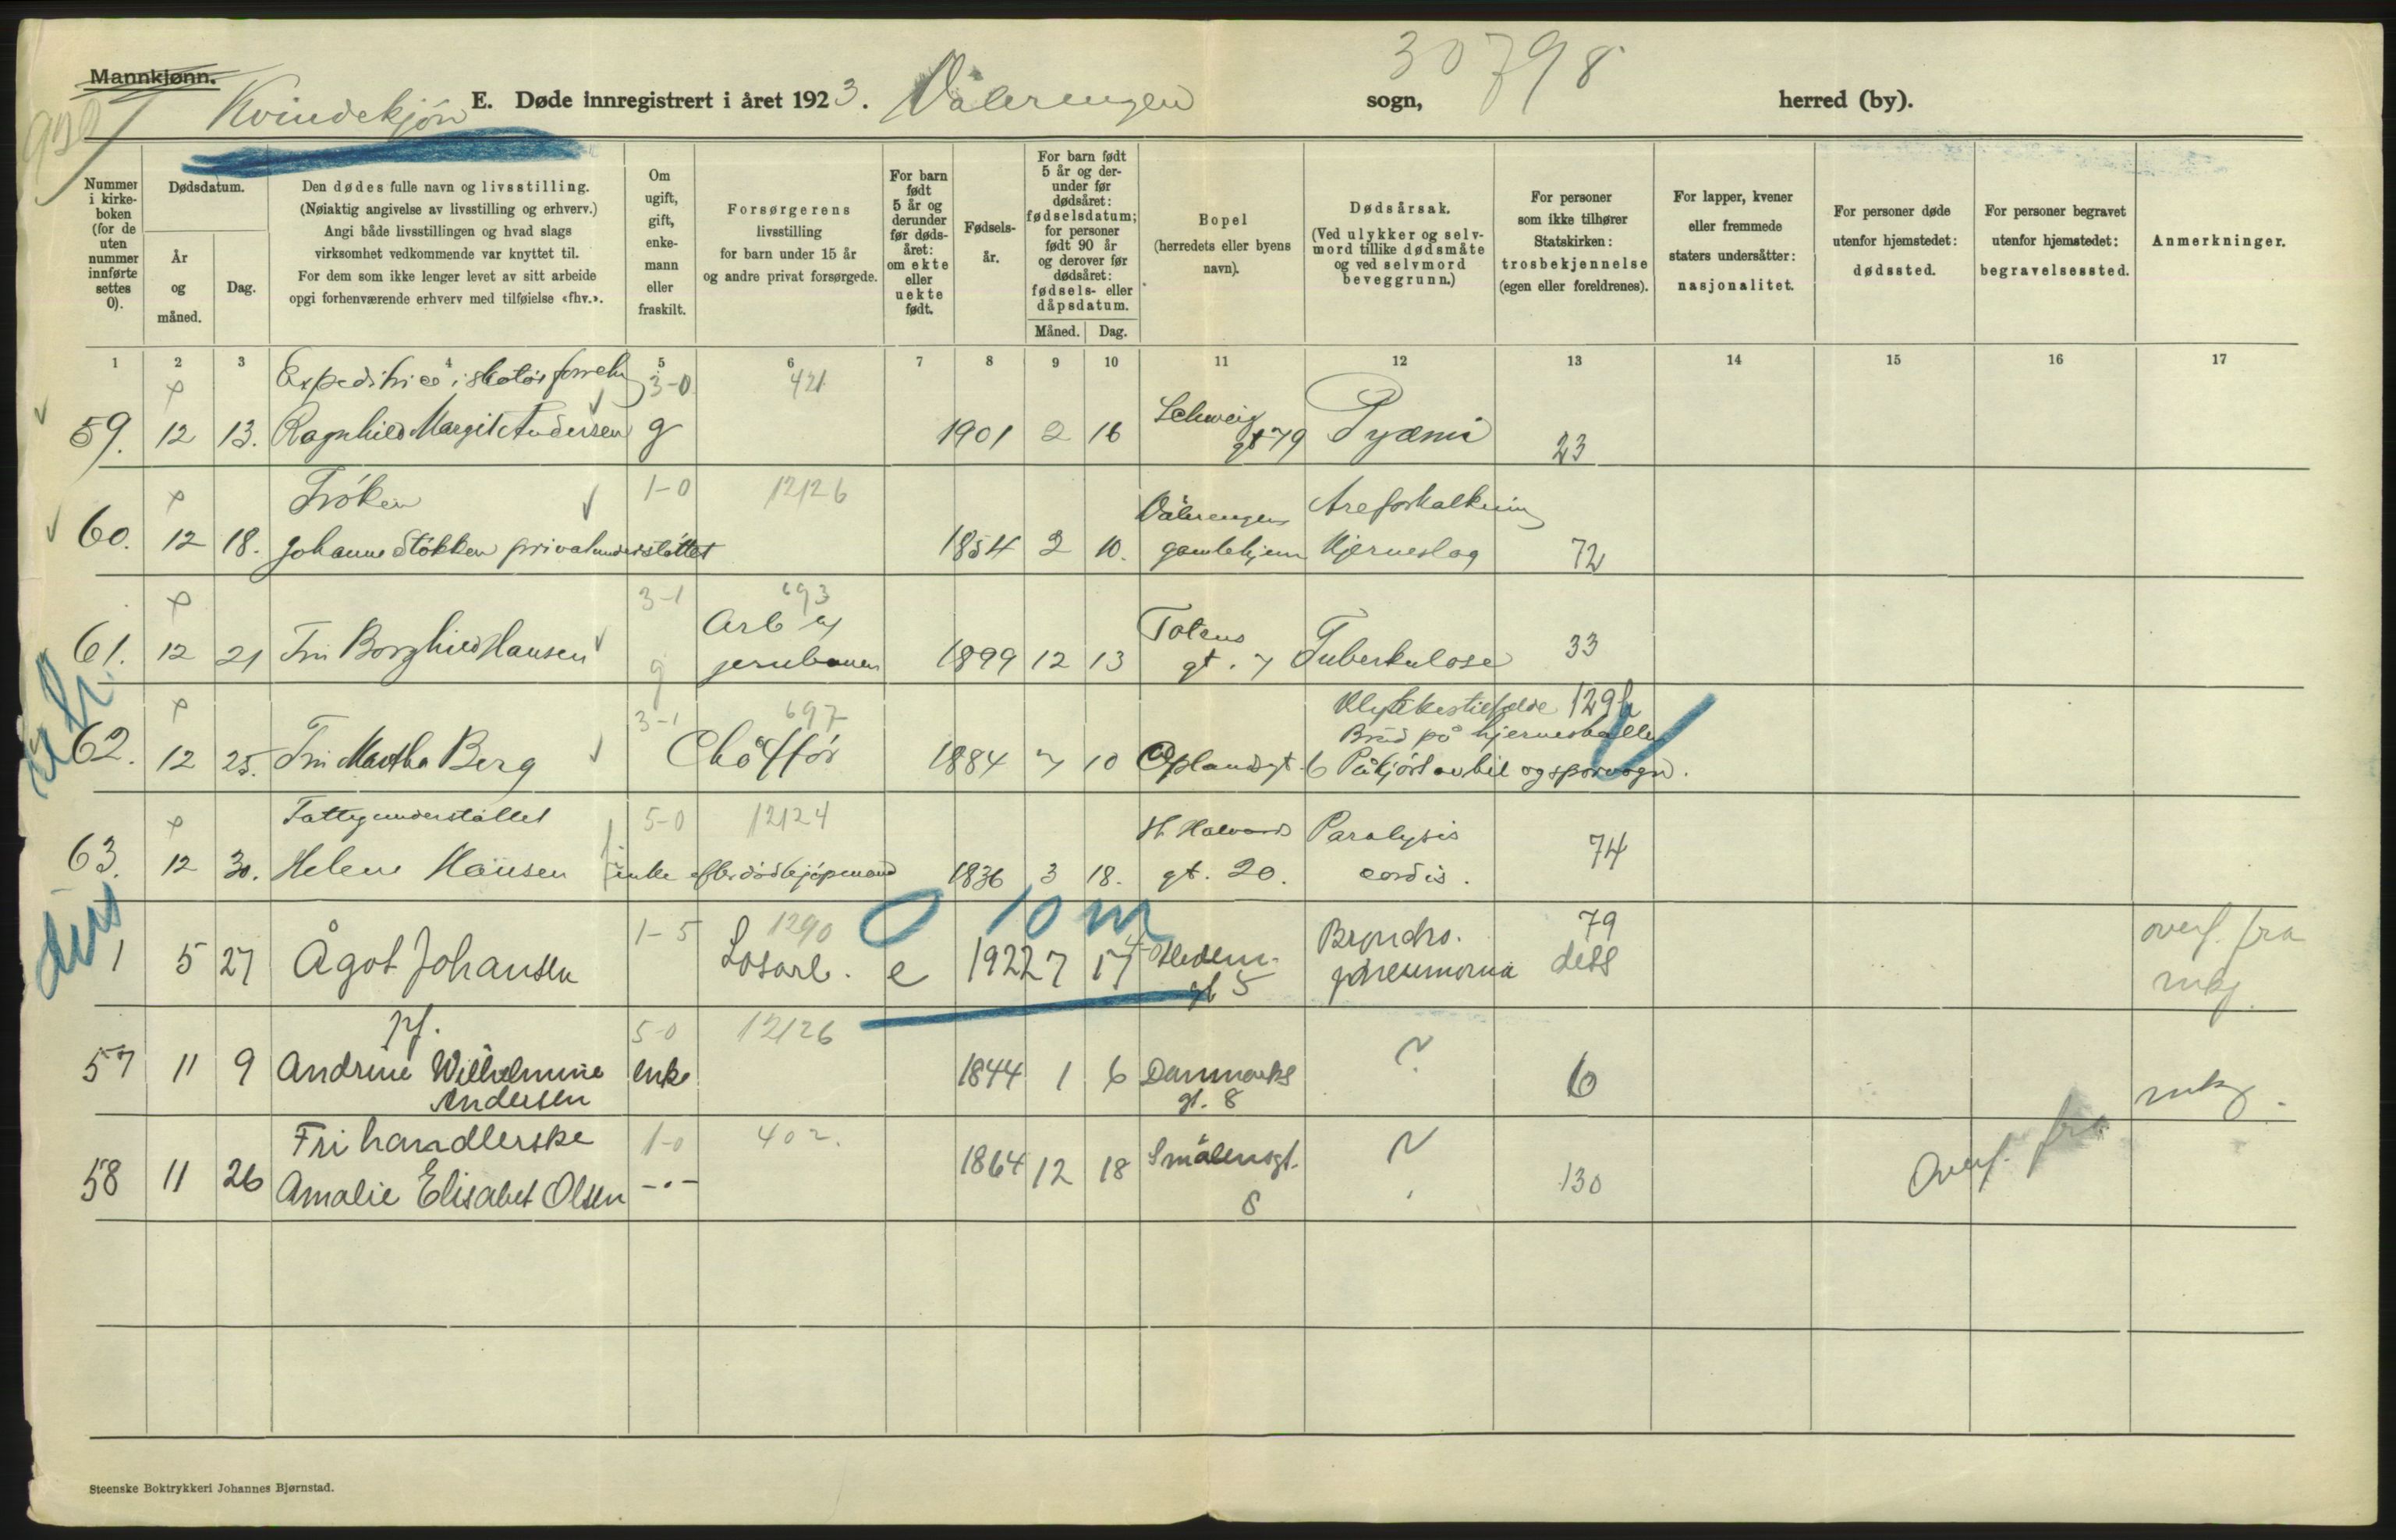 Mannkjønn.
Kvindekjøn
E. Døde innregistrert i året 1923. Vålerengen sogn, herred (by).
30798
Nummer i kirke-boken (for de uten nummer innførte settes 0).
Dødsdatum.
År og måned.
Dag.
Den dødes fulle navn og livsstilling.
(Nøiaktig angivelse av livsstilling og erhverv.)
Angi både livsstillingen og hvad slags
virksomhet vedkommende var knyttet til.
For dem som ikke lenger levet av sitt arbeide
opgi forhenværende erhverv med tilføielse «fhv.».
Om ugift, gift, enke-mann eller fraskilt.
Forsørgerens
livsstilling
for barn under 15 år
og andre privat forsørgede.
For barn født 5 år og derunder før døds-året: om ekte eller uekte født.
Fødsels-år.
For barn født 5 år og der-under før dødsåret: fødselsdatum; for personer født 90 år og derover før dødsåret: fødsels- eller dåpsdatum.
Måned. Dag.
Bopel
(herredets eller byens
navn).
Dødsårsak.
(Ved ulykker og selv-
mord tillike dødsmåte
og ved selvmord
beveggrunn.)
For personer
som ikke tilhører
Statskirken:
trosbekjennelse
(egen eller foreldrenes).
For lapper, kvener
eller fremmede
staters undersåtter:
nasjonalitet.
For personer døde
utenfor hjemstedet:
dødssted.
For personer begravet
utenfor hjemstedet:
begravelsessted.
Anmerkninger.
1 2 3 4 5 6 7 8 9 10 11 12 13 14 15 16 17
Expeditrice i skotøiforretn 3-0 421
59. 12 13. Ragnhild Margit Andersen g 1901 2 16 Schweig gt 79 Pyæmi 23
Frøken 1-0 12126
60. 12 18. Johanne Støkken privatunderstøttet 1854 2 10. Vålerengen gamlehjem Areforkalkning Hjerneslag 72
3-1 693
61. 12 21 Fru Borghild Hansen g Arb v/ jernbanen 1899 12 13 Totens gt. 7 Tuberkulose 33
3-1 697
62. 12 25. Fru Martha Berg Chåffør 1884 7 10 Oplandsgt. 6 Ulykkestilfelde 129b
Brud på hjerneskallen
Påkjørt av bil og sporvogn.
Fattigunderstøttet 5-0 12124
63. 12 30. Helene Hansen enke efter død kjøpmand 1836 3 18. St Halvards gt. 20. Paralysis cordis. 74
0 10 m
1-5 1290
1 5 27 Ågot Johansen Løsarb. e 1922 7 17 Hedem. gt 5 Broncho. pneumonia 79 dess overf. fra mkj
pf. 5-0 12126
57 11 9 Andrine Wilhelmine Andersen enke 1844 1 6 Danmarks gt. 8 ? 6 mkj.
Fri handlerske 1-0 402.
58 11 26 Amalie Elisabet Olsen -"- 1864 12 18 Smålensgt. 8 ? 130 Overf. fra
Steenske Boktrykkeri Johannes Bjørnstad.